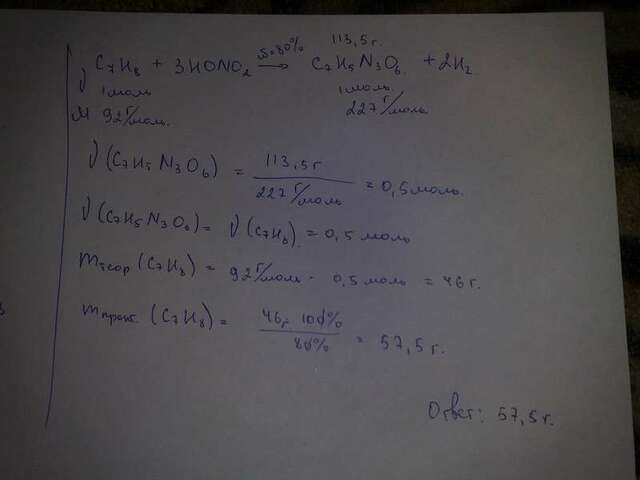 ω=80% 113,5 г.
C₇H₈ + 3HONO₂ → C₇H₅N₃O₆ + 2H₂
ν 1 моль 1 моль
M 92 г/моль. 227 г/моль
ν(C₇H₅N₃O₆) = 113,5 г / 227 г/моль = 0,5 моль.
ν(C₇H₅N₃O₆) = ν(C₇H₈) = 0,5 моль
mтеор(C₇H₈) = 92 г/моль · 0,5 моль = 46 г.
mпракт.(C₇H₈) = 46г · 100% / 80% = 57,5 г.
Ответ: 57,5 г.